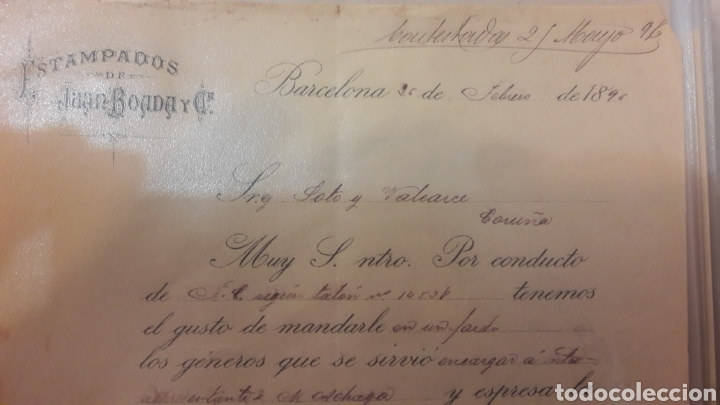 Contestada 25 Mayo 96
ESTAMPADOS
DE
JUAN BOADA Y Cª
Barcelona 26 de Febrero de 1896
Sres Soto y Valcarce
Coruña
Muy S. ntro. Por conducto
de F. C. según talón nº 14528 tenemos
el gusto de mandarle en un fardo
los géneros que se sirvió encargar á ntro
representante M. Achaga y espresa la
todocoleccion.net
todocoleccion